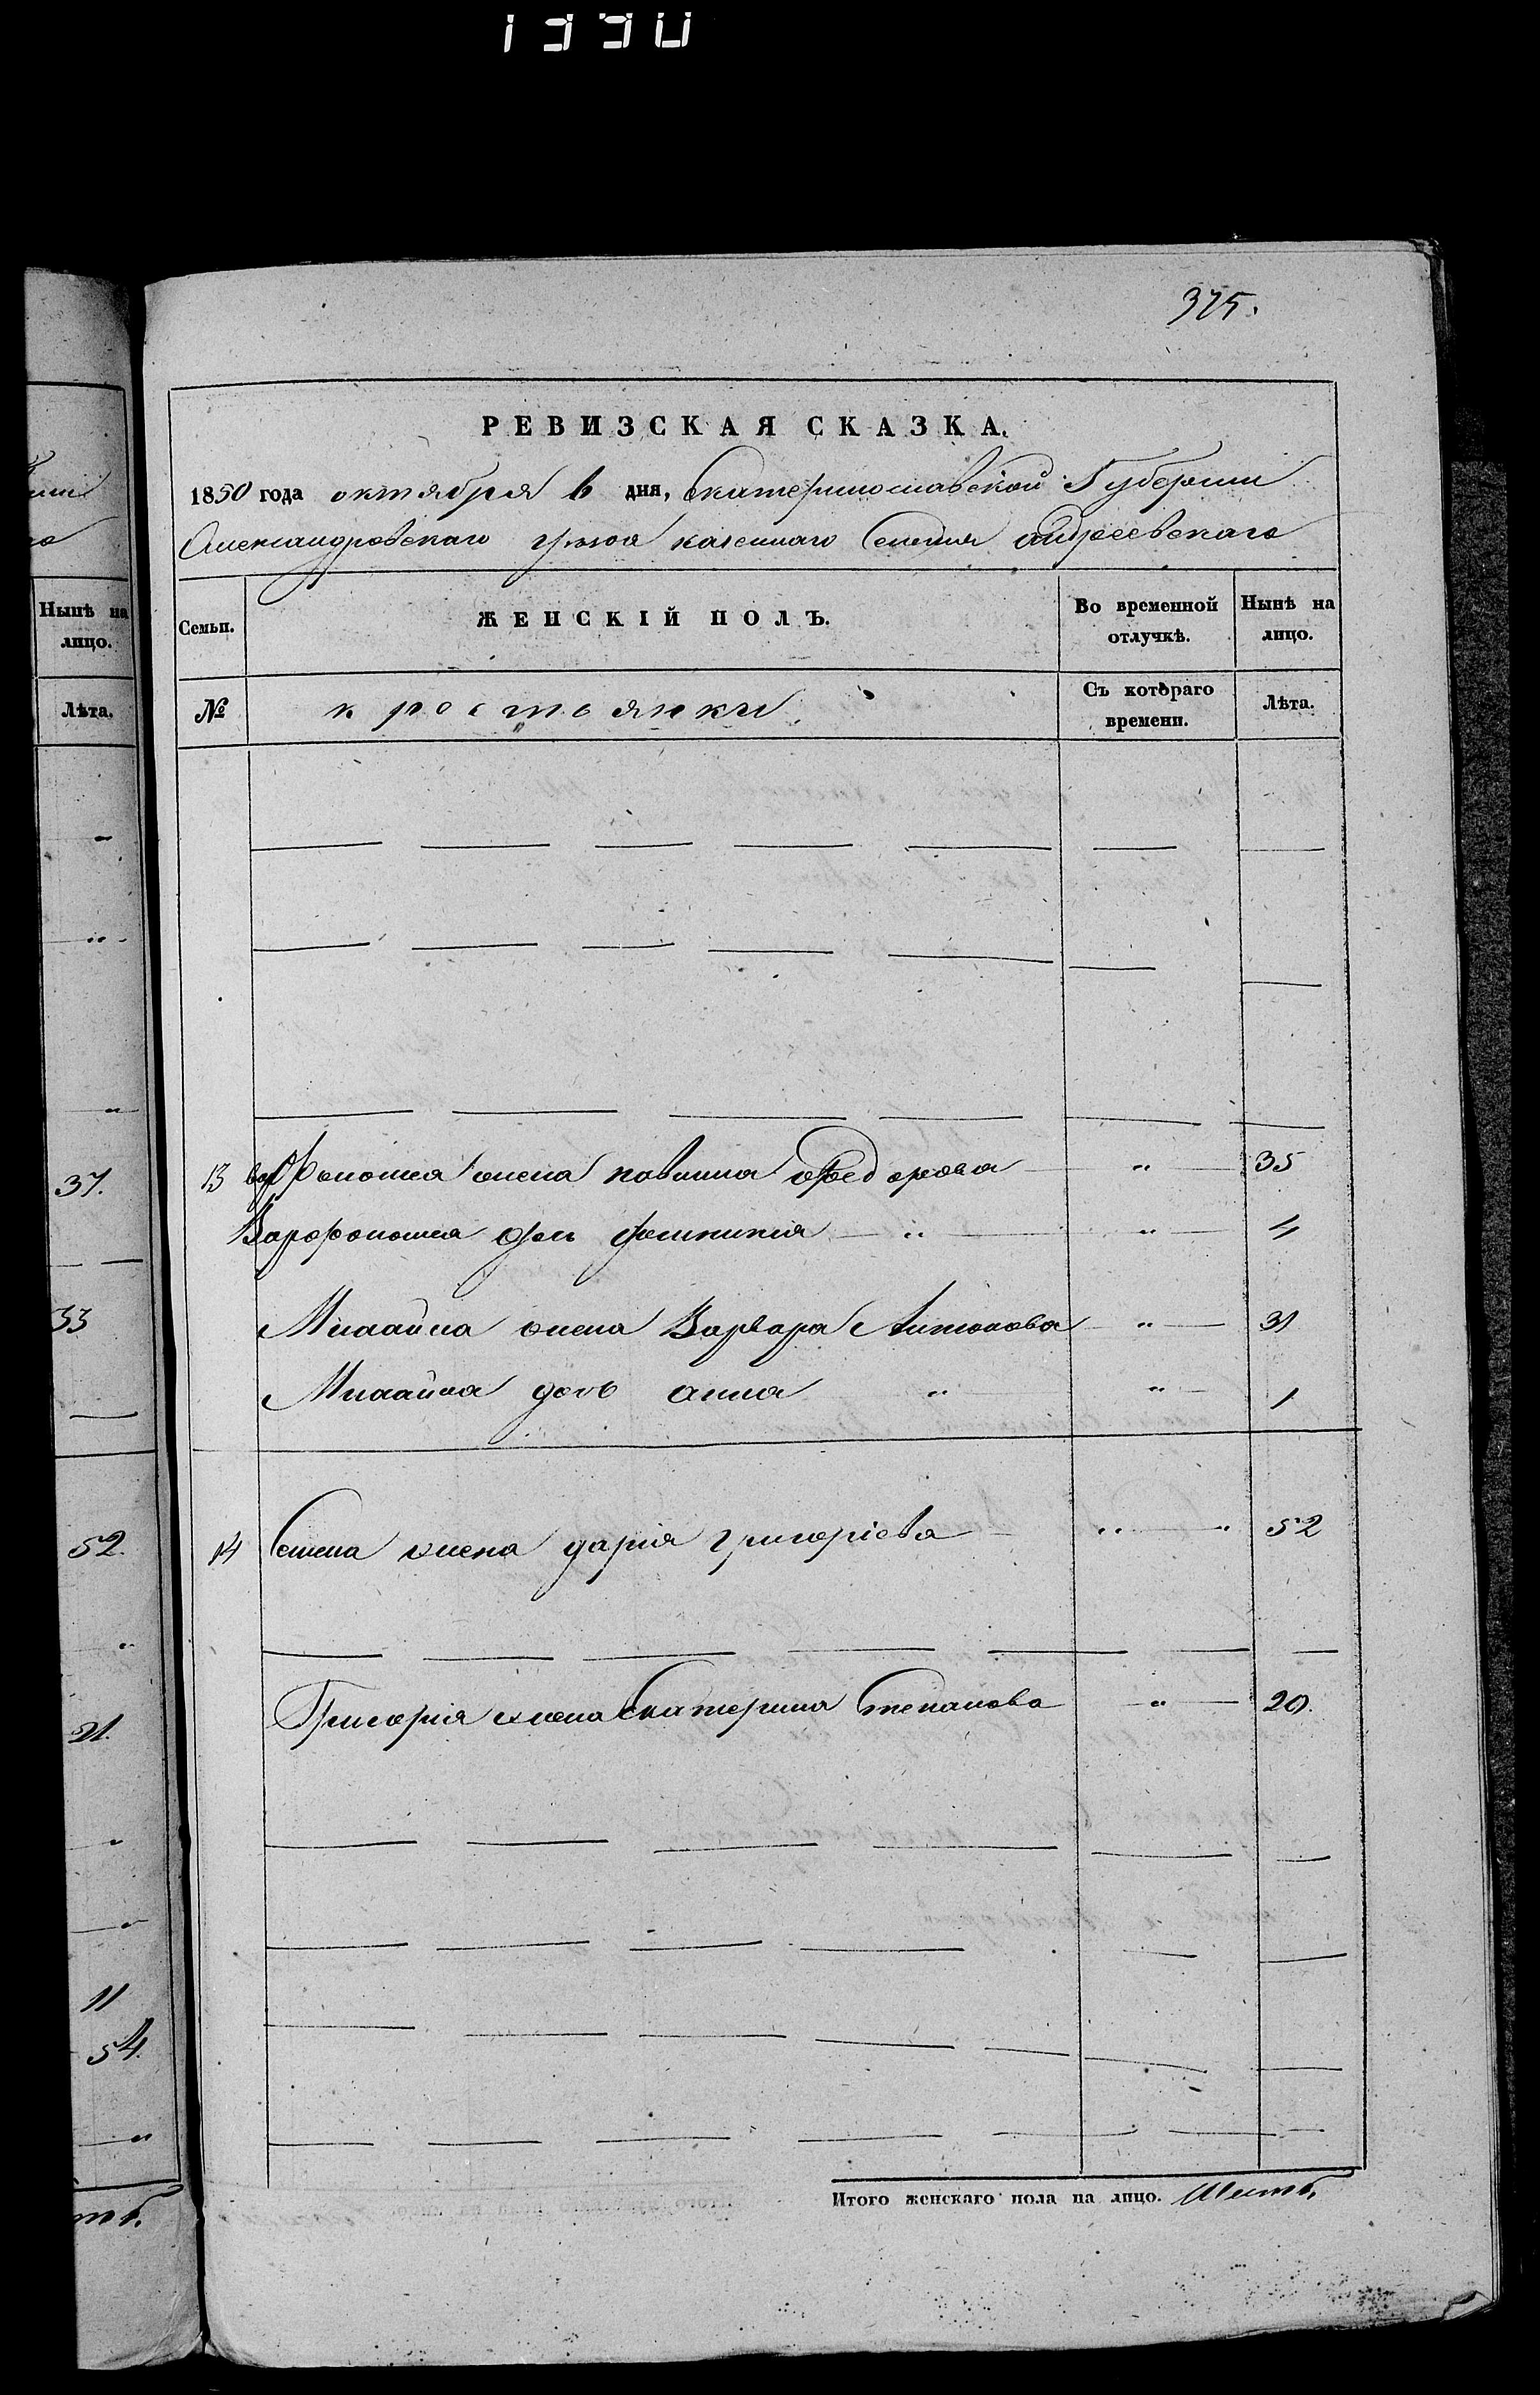 1990
375.
РЕВИЗСКАЯ СКАЗКА.
1850 года октября 6 дня, Екатеринославской Губернии
Александровскаго уѣзда казеннаго Селения андреевскаго
Нынѣ на лицо.
Семьи.
ЖЕНСКІЙ ПОЛЪ.
Во временной отлучкѣ.
Нынѣ на лицо.
Лѣта.
№
крестьянки
Съ котораго времени.
Лѣта.
37.
13 жена Федорова " 35
дочь " " 4
33
Михайла жена Варвара Антонова " 31
Михайла дочь анна " " 1
52.
14 Семена жена дарія григоріева " " 52
21.
Григорія жена Екатерина Степанова " 20.
11
54.
Итого женскаго пола на лицо. Шесть.